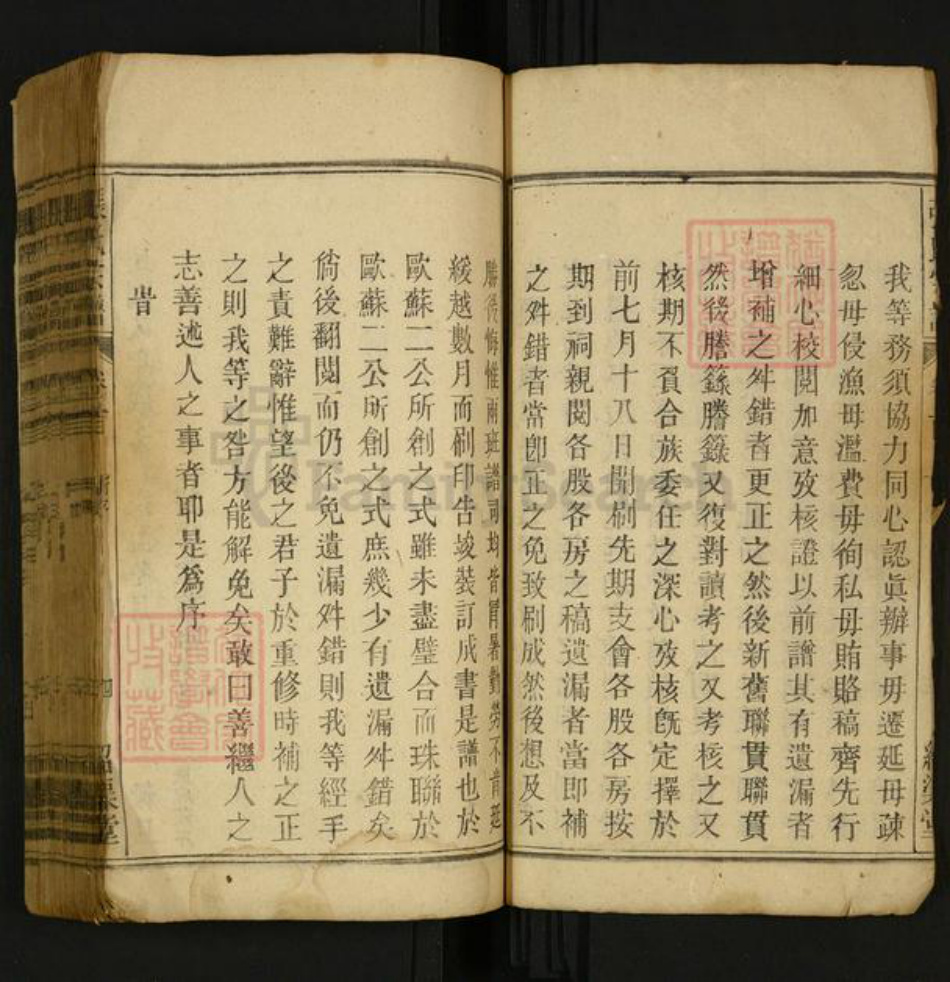 我等務須協力同心認眞辦事毋遷延毋疎
忽毋侵漁毋濫費毋徇私毋賄賂稿齊先行
細心校閱加意攷核證以前譜其有遺漏者
增補之舛錯者更正之然後新舊聯貫聯貫
然後謄籙謄籙又復對讀考之又考核之又
核期不負合族委任之深心攷核旣定擇於
前七月十八日開刷先期支會各股各房按
期到祠親閱各股各房之稿遺漏者當即補
之舛錯者當卽正之免致刷成然後想及不
勝後悔惟兩班譜司均皆冐暑勤勞不肯延
緩越數月而刷印告竣裝訂成書是譜也於
歐蘇二公所創之式雖未盡璧合而珠聯於
歐蘇二公所創之式庶幾少有遺漏舛錯矣
倘後翻閱而仍不免遺漏舛錯則我等經手
之責難辭惟望後之君子於重修時補之正
之則我等之咎方能解免矣敢曰善繼人之
志善述人之事者耶是爲序
旹
FamilySearch